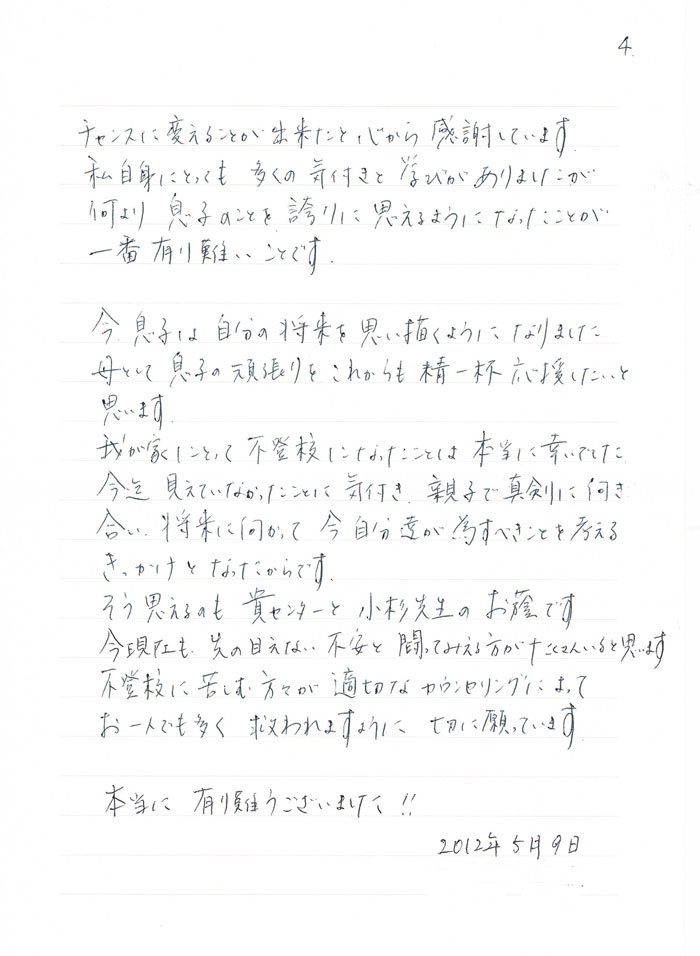 4.
チャンスに変えることが出来たと心から感謝しています.
私自身にとっても 多くの気付きと学びがありましたが
何より 息子のことを誇りに思えるようになったことが
一番有り難いことです.
今.息子は自分の将来を思い描くようになりました
母として 息子の頑張りを これからも精一杯応援したいと
思います.
我が家にとって 不登校になったことは本当に幸いでした
今迄 見えていなかったことに気付き.親子で真剣に向き
合い.将来に向かって 今自分達が為すべきことを考える
きっかけとなったからです.
そう思えるのも 貴センターと小杉先生のお蔭です
今現在も.先の目えない不安と闘ってみえる方がたくさんいると思います
不登校に苦しむ方々が適切なカウンセリングによって
お一人でも多く 救われますように 切に願っています.
本当に 有り難うございました!!
2012年5月9日